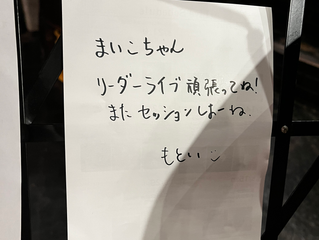 まいこちゃん
リーダーライブ頑張ってね!
またセッションしよーね.
もといい